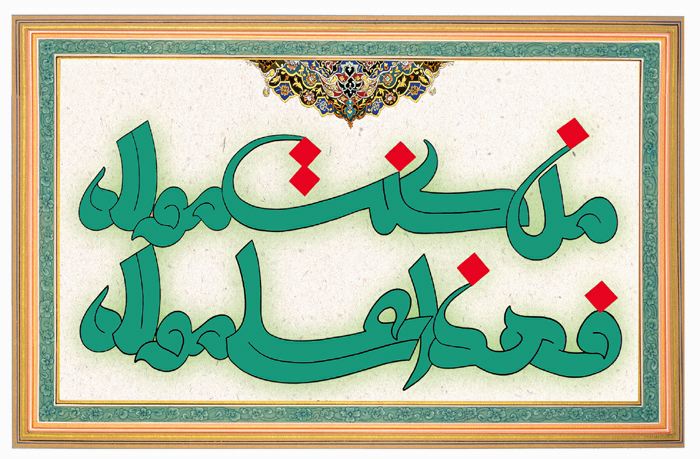 من کنت مولاه
فهذا علی مولاه